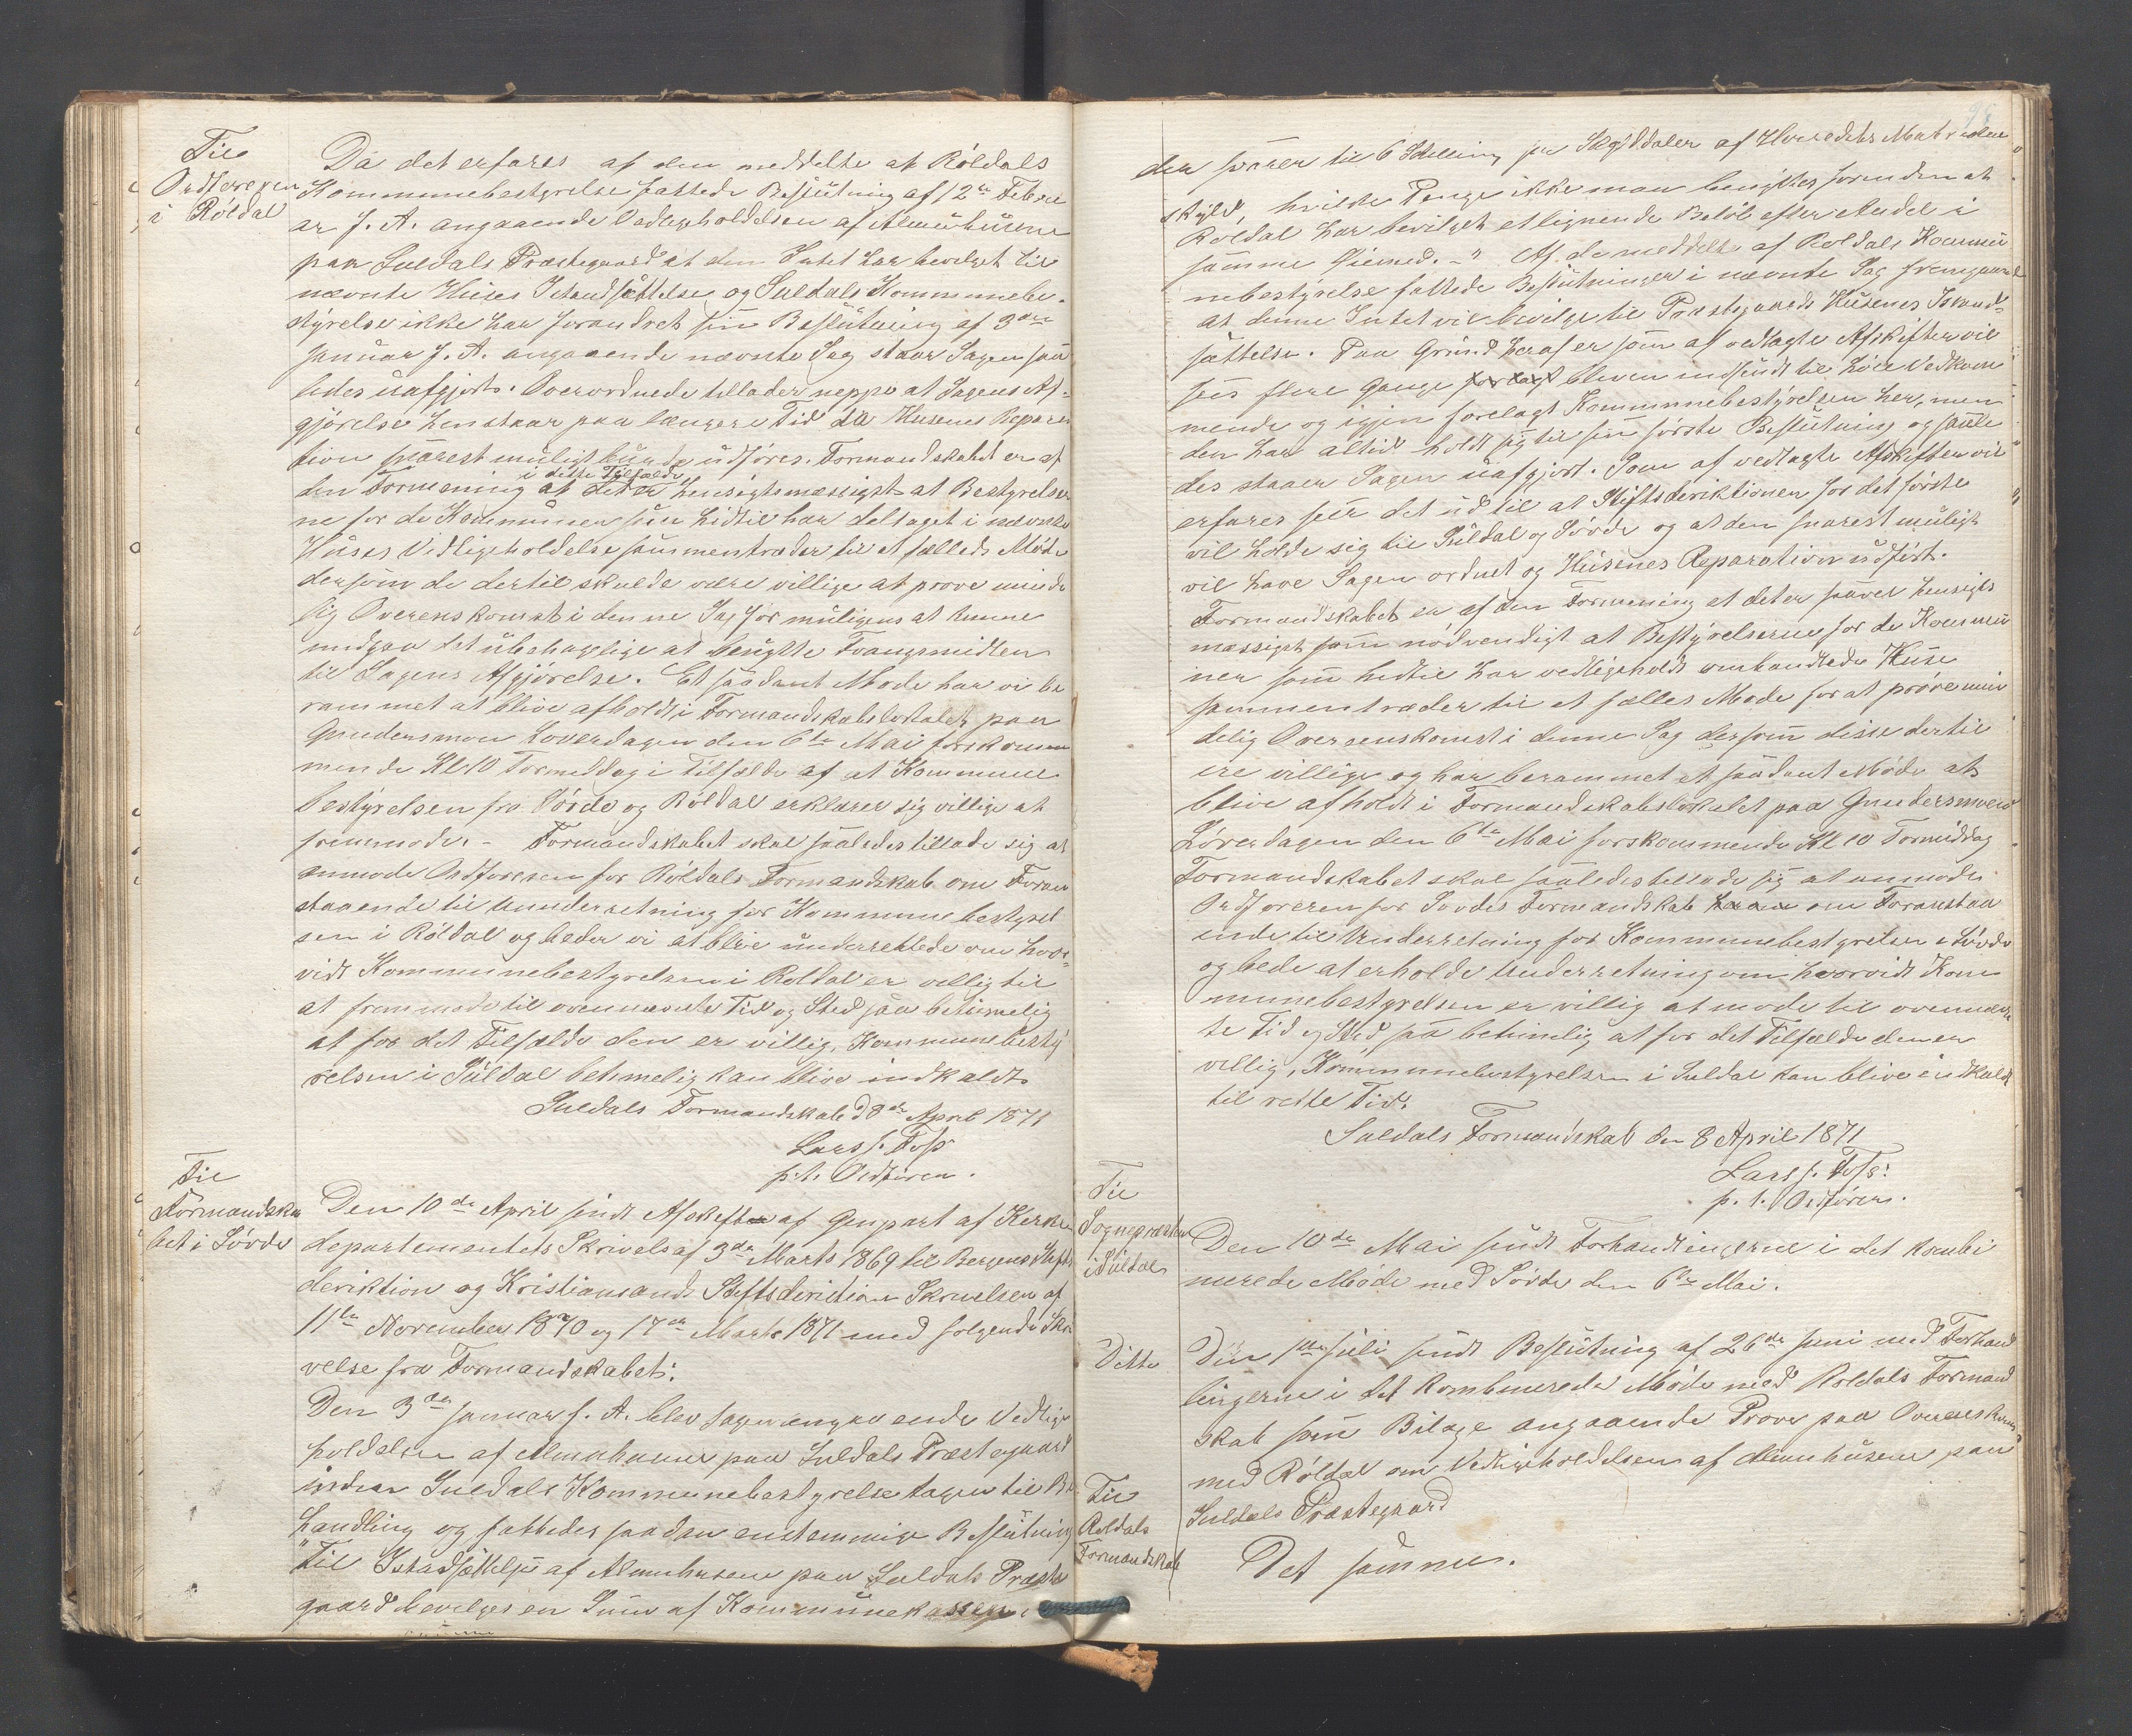 Til
Ordføreren
i Røldal
Da det erfares af den meddelte at Røldals
Kommunebestyrelse fattede Beslutning af 12te Febru
ar f. A. angaaende Vedligeholdelsen af Almuehusene
paa Suldals Præstegaard at den Intet har bevilget til
nævnte Huses Istandsættelse og Suldals Kommunebe-
styrelse ikke har forandret sin Beslutning af 3die
Januar f. A. angaaende nævnte Sag staar Sagen saa
ledes uafgjort. Overordnede tillader neppe at Sagens Af-
gjørelse henstaar paa længere Tid da Husenes Repara
tion snarest muligt burde udføres. Formandskabet er af
i dette Tilfælde
den Formening at det er hensigtsmæssigst at Bestyrelser
ne for de Kommuner som hidtil har deltaget i nævnte
Huses Vedligeholdelse sammentræder til et fælleds Møde
dersom de dertil skulde være villige at prøve minde
lig Overenskomst i denne Sag for muligens at kunne
undgaa det ubehagelige at benytte Tvangsmidler
til Sagens Afgjørelse. Et saadant Møde har vi be
rammet at blive afholdt i Formandskabslokalet paa
Gundersmoen Løverdagen den 6te Mai førskomm
mende Kl 10 Formiddag i Tilfælde af at Kommune
bestyrelsen fra Søvde og Røldal erklærer sig villige at
fremmøde. - Formandskabet skal saaledes tillade sig at
anmode Ordføreren for Røldals Formandskab om Foran
staaende til Underretning for Kommunebestyrel
sen i Røldal og beder vi at blive underrettede om hvor-
vidt Kommunebestyrelsen i Røldal er villig til
at fremmøde til ovennævnte Tid og Sted saa betimelig
at for det Tilfælde den er villig, Kommunebesty
relsen i Suldal betimelig kan blive indkaldt
Suldals Formandskab d 8de April 1871
Lars J. Foss
p.t. Ordfører.
Til
Formandska
bet i Søvde
Den 10de April sendt Afskrifter af Genpart af Kirke
departementets Skrivelse af 3die Marts 1869 til Bergens Stifts
deriktion og Kristiansands Stiftsdiriktions Skrivelser af
11te November 1870 og 17de Marts 1871 med følgende Skri
velse fra Formandskabet:
Den 3die Januar f. A. blev Sagen angaaende Vedlige
holdelsen af Almuehusene paa Suldals Præstegaard
under Suldals Kommunebestyrelse tagen til Be
handling og fattedes saadan enstemmige Beslutning
"Til Istadsættelse af Almuehusene paa Suldals Præste
gaard bevilges en Sum af Kommunekassen
der svarer til 6 Skilling pr Skylddaler af Herredets Matrikul
skyld, hvilke Penge ikke maa benyttes forinden at
Røldal har bevilget et lignende Beløb efter Andel i
samme Øiemed. -" Af de meddelte af Røldals Kommu
nebestyrelse fattede Beslutninger i nævnte Sag fremgaar
at denne Intet vil bevilge til Præstegaards Husenes Istand-
sættelse. Paa Grund heraf er som af vedlagte Afskifter vil
sees flere Gange forlagt bleven indsendt til høie Vedkom
mende og igjen forelagt Kommunebestyrelsen her, men
den har altid holdt sig til sin første Beslutning og saale
des staaer Sagen uafgjort. Som af vedlagte Afskifter vil
erfares seer det ud til at Stiftsdiriktionen for det første
vil holde sig til Suldal og Søvde og at den snarest muligt
vil have Sagen ordnet og Husenes Reparation udført.
Formandskabet er af den Formening at det er saavel hensigts
mæssigst som nødvendigt at Bestyrelserne for de Kommu
ner som hidtil har vedligeholdt omhandlede Huse
sammentræder til et fælles Møde for at prøve min
delig Overenskomst i denne Sag dersom disse dertil
ere villige og har berammet et saadant Møde at
blive afholdt i Formandskabslokalet paa Gundersmoen
Løverdagen den 6te Mai førskommende Kl 10 Formiddag
Formandskabet skal saaledes tillade sig at anmode
Ordføreren for Søvdes Formandskab om Foranstaa
ende til Underretning for Kommunebestyrelsen i Søvde
og bede at erholde Underretning om hvorvidt Kom
munebestyrelsen er villig at møde til ovennævn
te Tid og Sted saa betimelig at for det Tilfælde den er
villig, Kommunebestyrelsen i Suldal kan blive indkaldt
til rette Tid.
Suldals Formandskab den 8 April 1871
Lars J. Foss.
p. t. Ordfører.
Til
Sognepræsten
i Suldal
Den 10de Mai sendt Forhandlingerne i det kombi
nerede Møde med Søvde den 6te Mai.
Ditto
Den 1ste Juli sendt Beslutning af 26de Juni med Forhand
lingerne i det kombinerede Møde med Røldals Formand
skab som Bilage angaaende Prøve paa Overenskomst
med Røldal om Vedligeholdelsen af Almuehusene paa
Suldals Præstegaard
Til
Røldals
Formandskab
Det samme.